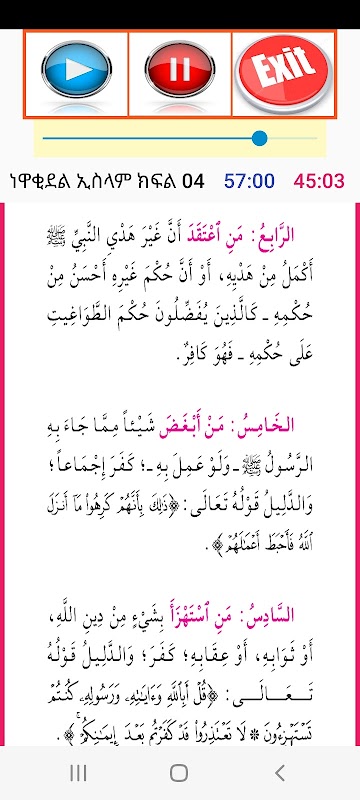 Exit
ነዋቂደል ኢስላም ክፍል 04 57:00 45:03
الرَّابِعُ: مَنِ ٱعْتَقَدَ أَنَّ غَيْرَ هَدْيِ النَّبِيِّ ﷺ
أَكْمَلُ مِنْ هَدْيِهِ، أَوْ أَنَّ حُكْمَ غَيْرِهِ أَحْسَنُ مِنْ
حُكْمِهِ ـ كَالَّذِينَ يُفَضِّلُونَ حُكْمَ الطَّوَاغِيتِ
عَلَى حُكْمِهِ ـ فَهُوَ كَافِرٌ.
الخَامِسُ: مَنْ أَبْغَضَ شَيْئاً مِمَّا جَاءَ بِهِ
الرَّسُولُ ﷺ ـ وَلَوْ عَمِلَ بِهِ ـ؛ كَفَرَ إِجْمَاعاً؛
وَالدَّلِيلُ قَوْلُهُ تَعَالَى: ﴿ذَٰلِكَ بِأَنَّهُمْ كَرِهُوا۟ مَآ أَنزَلَ
ٱللَّهُ فَأَحْبَطَ أَعْمَٰلَهُمْ﴾.
السَّادِسُ: مَنِ ٱسْتَهْزَأَ بِشَيْءٍ مِنْ دِينِ اللَّهِ،
أَوْ ثَوَابِهِ، أَوْ عِقَابِهِ؛ كَفَرَ؛ وَالدَّلِيلُ قَوْلُهُ
تَــعَــالَــى: ﴿قُلْ أَبِٱللَّهِ وَءَايَٰتِهِۦ وَرَسُولِهِۦ كُنتُمْ
تَسْتَهْزِءُونَ * لَا تَعْتَذِرُوا۟ قَدْ كَفَرْتُم بَعْدَ إِيمَٰنِكُمْ ۚ﴾.